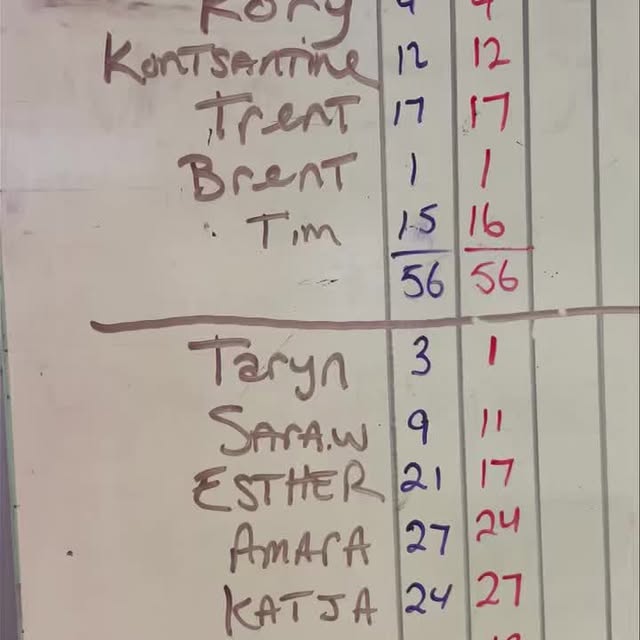 Kory
Kontsantine 12 12
Trent 17 17
Brent 1 1
Tim 15 16
56 56
Taryn 3 1
Sara.W 9 11
ESTHER 21 17
AMARA 27 24
KATJA 24 27